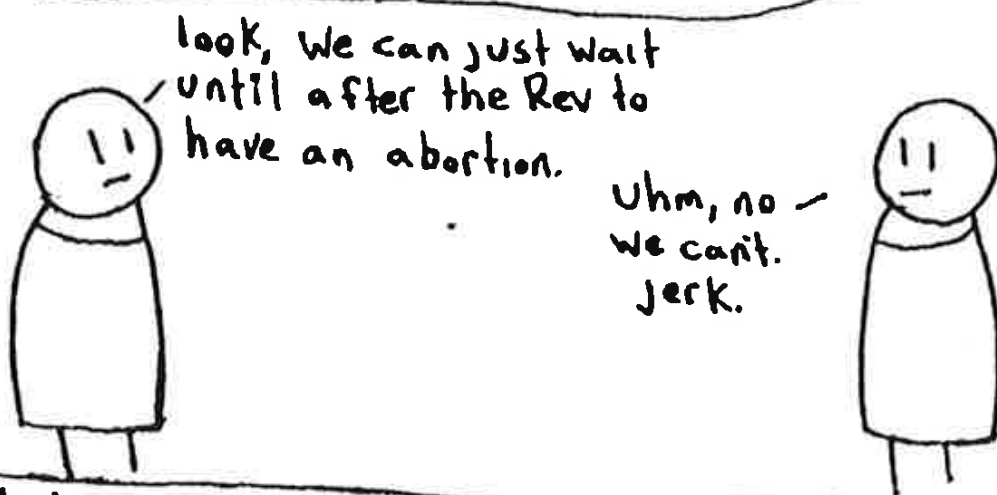 look, we can just wait
until after the Rev to
have an abortion.
Uhm, no
we can't.
jerk.